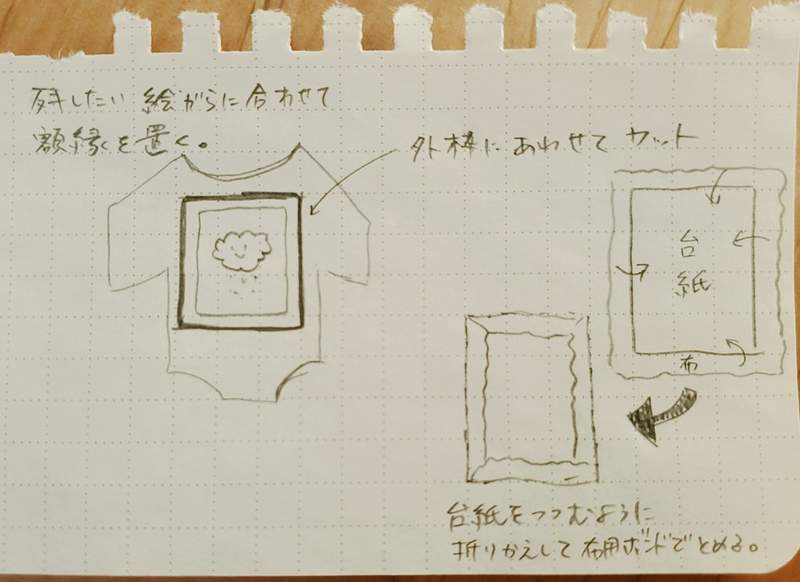 残したい 絵がらに合わせて
額縁を置く。
外枠にあわせて カット
台
紙
布
台紙をつつむように
折りかえして 布用ボンドでとめる。